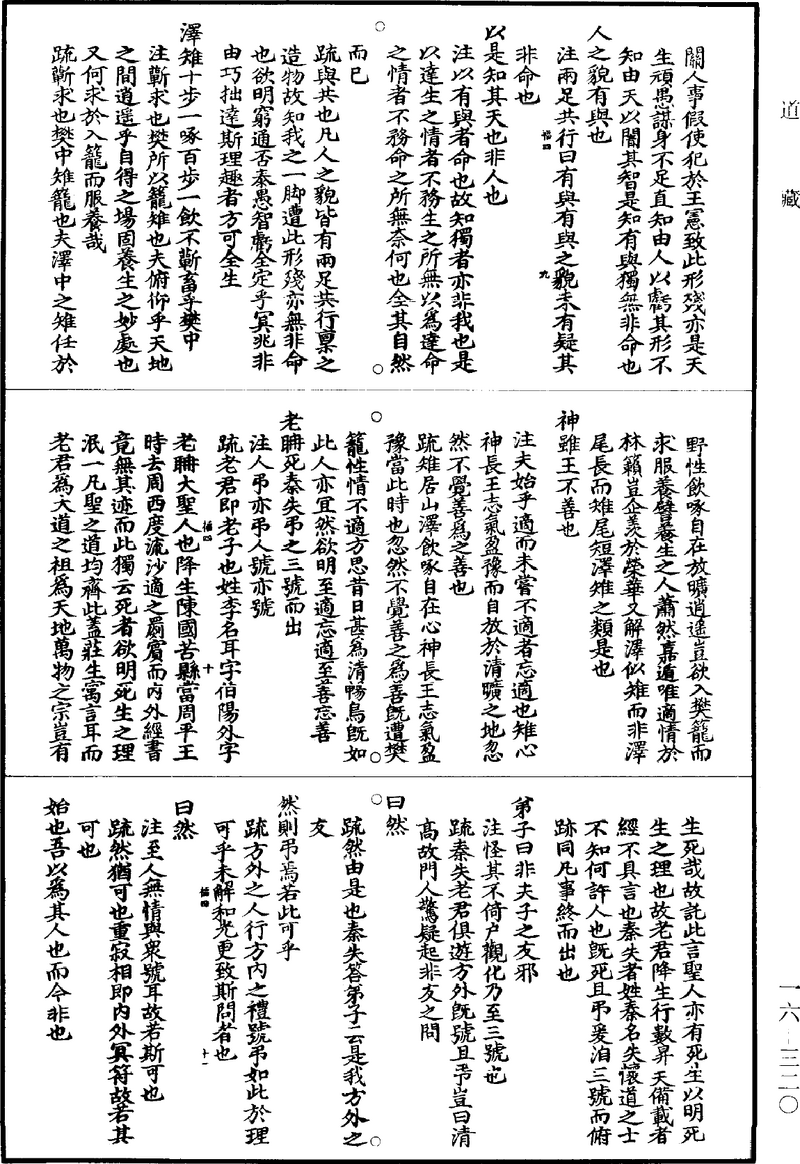 道藏
一六-三二〇
關人事假使犯於王憲致此形殘亦是天
生頑愚謀身不足直知由人以虧其形不
知由天以闇其智是知有與獨無非命也
人之貌有與也
注兩足共行曰有與有與之貌未有疑其
非命也
以是知其天也非人也
注以有與者命也故知獨者亦非我也是
以達生之情者不務生之所無以為達命
之情者不務命之所無奈何也全其自然
而已
疏與共也凡人之貌皆有兩足共行稟之
造物故知我之一脚遭此形殘亦無非命
也欲明窮通否泰愚智虧全定乎冥兆非
由巧拙達斯理趣者方可全生
澤雉十步一啄百步一飲不蘄畜乎樊中
注蘄求也樊所以籠雉也夫俯仰乎天地
之間逍遥乎自得之場固養生之妙處也
又何求於入籠而服養哉
疏蘄求也樊中雉籠也夫澤中之雉任於
野性飲啄自在放曠逍遥豈欲入樊籠而
求服養譬養生之人蕭然嘉遁唯適情於
林籟豈企羨於榮華又解澤似雉而非澤
尾長而雉尾短澤雉之類是也
神雖王不善也
注夫始乎適而未嘗不適者忘適也雉心
神長王志氣盈豫而自放於清曠之地忽
然不覺善為之善也
疏雉居山澤飲啄自在心神長王志氣盈
豫當此時也忽然不覺善之為善既遭樊
籠性情不適方思昔日甚為清暢鳥既如
此人亦宜然欲明至適忘適至善忘善
老聃死秦失弔之三號而出
注人弔亦弔人號亦號
疏老君即老子也姓李名耳字伯陽外字
老聃大聖人也降生陳國苦縣當周平王
時去周西度流沙適之罽賓而内外經書
竟無其迹而此獨云死者欲明死生之理
泯一凡聖之道均齊此蓋莊生寓言耳而
老君為大道之祖為天地萬物之宗豈有
生死哉故託此言聖人亦有死生以明死
生之理也故老君降生行數昇天備載者
經不具言也秦失者姓秦名失懷道之士
不知何許人也既死且弔爰洎三號而俯
跡同凡事終而出也
弟子曰非夫子之友邪
注怪其不倚户觀化乃至三號也
疏秦失老君俱遊方外既號且弔豈曰清
高故門人驚疑起非友之問
曰然
疏然由是也秦失答弟子云是我方外之
友
然則弔焉若此可乎
疏方外之人行方内之禮號弔如此於理
可乎未解和光更致斯問者也
曰然
注至人無情與衆號耳故若斯可也
疏然猶可也重寂相即内外冥符故若其
可也
始也吾以為其人也而今非也